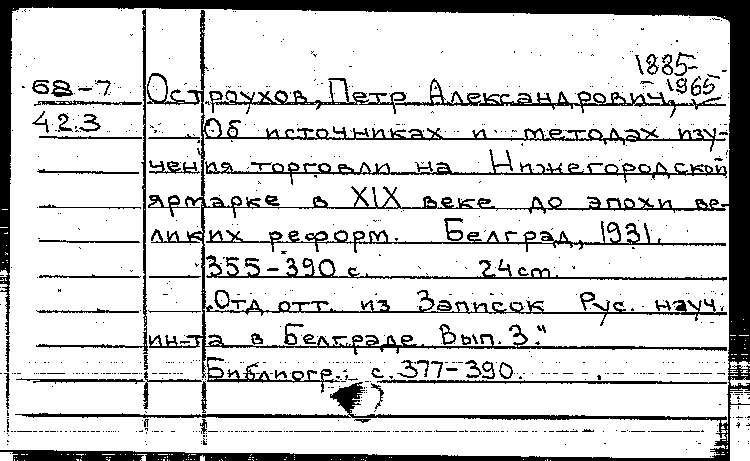 1885-
68-7 Остроухов, Петр Александрович, 1965
423 Об источниках и методах изу-
чения торговли на Нижегородской
ярмарке в XIX веке до эпохи ве-
ликих реформ. Белград, 1931.
355-390 с. 24 cm.
„Отд. отт. из Записок Рус. науч.
ин-та в Белграде. Вып. 3."
Библиогр.: с. 377-390.